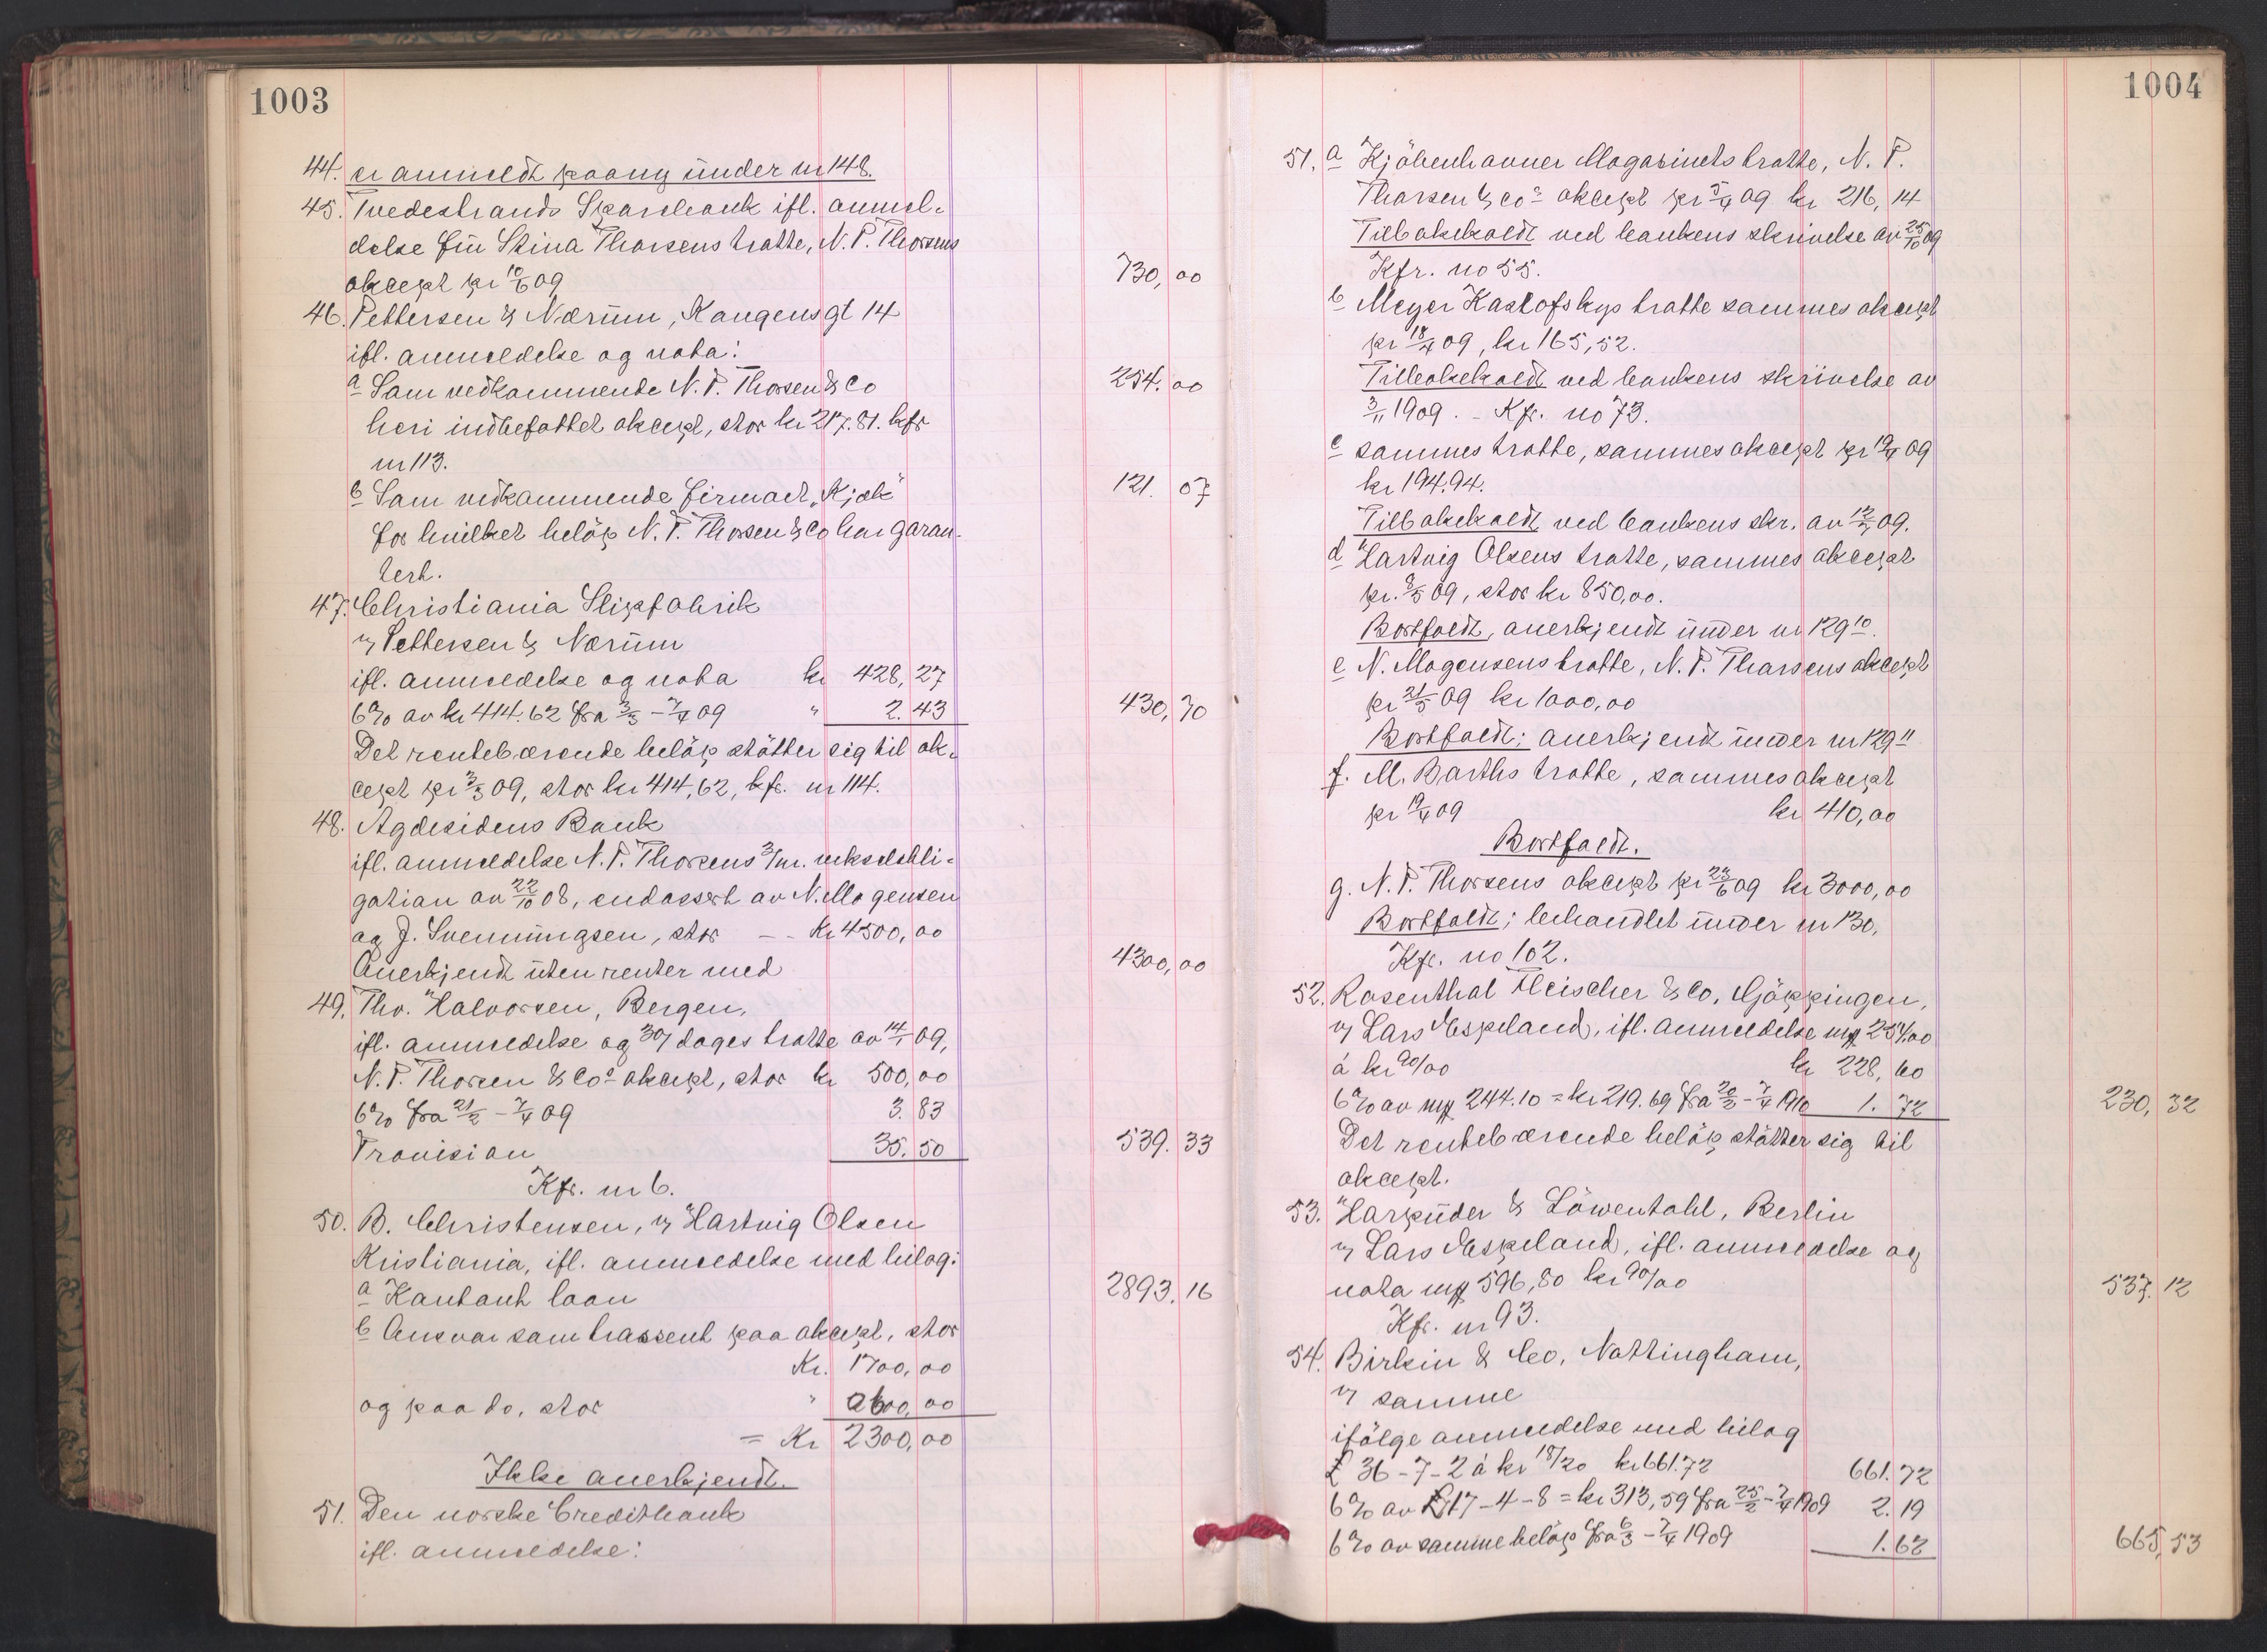 1003
44. er anmeldt paany under nr 148.
45. Tvedestrands Sparebank ifl. anmel-
delse fru Stina Thorsens tratte, N. P. Thorsens
akcept pr 10/6 09 730,00
46. Pettersen & Nærum, Kongensgt 14
ifl. anmeldelse og nota:
a Som vedkommende N. P. Thorsen & Co 254.00
heri indbefattet akcept, stor kr 217.81. kfr
nr 113.
b Som vedkommende firmaet "Kjæk" 121.07
for hvilket beløp N. P. Thorsen & Co har garan-
tert.
47. Christiania Slipsfabrik
v/ Pettersen & Nærum
ifl. anmeldelse og nota kr 428,27
6% av kr 414.62 fra 3/3 - 7/4 09 " 2.43 430,70
Det rentebærende beløp støtter sig til ak-
cept pr 3/3 09, stor kr 414,62, kfr. nr 114.
48. Agdesidens Bank
ifl. anmeldelse N. P. Thorsens 3/m. vekselobli-
gation av 22/10 08, endossert av N. Mogensen
og J. Svenningsen, stor -- Kr 4500,00
Anerkjendt uten renter med 4300,00
49. Thv. Halvorsen, Bergen,
ifl. anmeldelse og 30/ dages tratte av 14/1 09,
N. P. Thorsen & Cos akcept, stor kr 500,00
6% fra 21/2 - 7/4 09 3.83
Provision 35.50 539.33
Kfr. nr 6.
50. B. Christensen, v/ Hartvig Olsen
Kristiania, ifl. anmeldelse med bilag:
a Kontant laan 2893.16
b Ansvar som trassent paa akcept, stor
Kr. 1700,00
og paa do, stor " 600,00
= Kr 2300,00
Ikke anerkjendt.
51. Den norske Creditbank
ifl. anmeldelse:
1004
51. a Kjöbenhavner Magasinets tratte, N. P.
Thorsen & Cos akcept pr 5/4 09 kr 216,14
Tilbakekaldt ved bankens skrivelse av 25/10 09
Kfr. no 55.
b Meyer Kastofskys tratte sammes akcept
pr 18/4 09, kr 165,52.
Tilbakekaldt ved bankens skrivelse av
3/11 1909. - Kfr. no 73.
c sammes tratte, sammes akcept pr 19/4 09
kr 194.94.
Tilbakekaldt ved bankens skr. av 12/7 09.
d Hartvig Olsens tratte, sammes akcept
pr. 8/5 09, stor kr 850,00.
Bortfaldt, anerkjendt under nr 129 10.
e N. Mogensens tratte, N. P. Thorsens akcept
pr 21/5 09 kr 1000,00
Bortfaldt; anerkjendt under nr 129 11
f. M. Barths tratte, sammes akcept
pr 19/4 09 kr 410,00
Bortfaldt.
g. N. P. Thorsens akcept pr 23/6 09 kr 3000,00
Bortfaldt; behandlet under nr 130,
Kfr. no 102.
52. Rosenthal Fleischer & Co, Göppingen,
v/ Lars Espeland, ifl. anmeldelse mk 254.00
á kr 90/00 kr 228,60
6% av mk 244.10 = kr 219.69 fra 20/3 - 7/4 1910 1.72 230,32
Det rentebærende beløp støtter sig til
akcept.
53. Harpuder & Löwentahl, Berlin
v/ Lars Espeland, ifl. anmeldelse og
nota mk 596,80 kr 90/00 537.12
Kfr. nr 93.
54. Birkin & Co, Nottingham,
v/ samme
ifølge anmeldelse med bilag
£ 36-7-2 á kr 18/20 kr 661.72 661.72
6% av £ 17-4-8 = kr 313,59 fra 25/2 - 7/4 1909 2.19
6% av samme beløp fra 6/3 - 7/4 1909 1.62 665,53